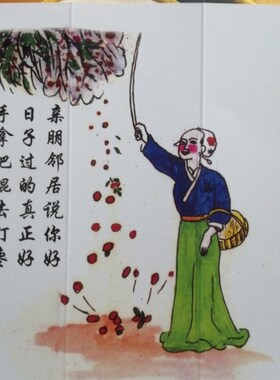 亲朋邻居说你好
日子过的真正好
手拿把棍去打枣